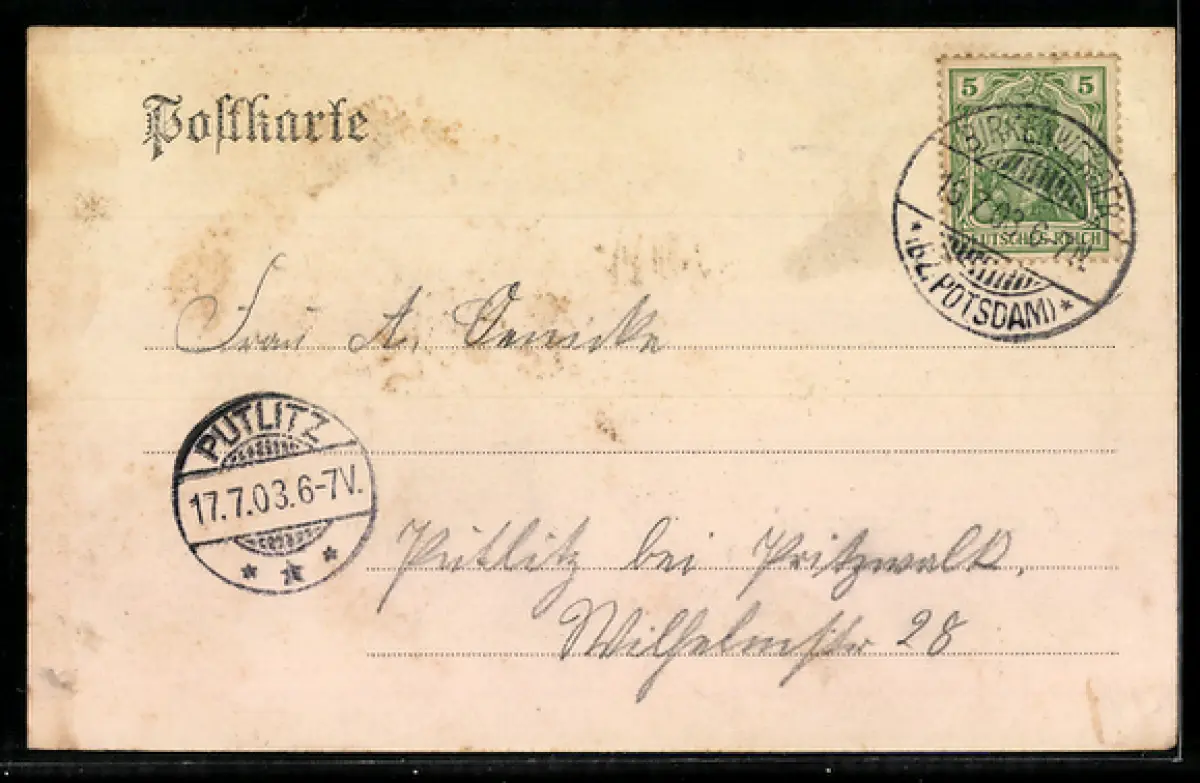 Postkarte
5 5
DEUTSCHES REICH
BIRKENWERDER
7.03. 6-7 N.
* (BZ. POTSDAM) *
Frau A. Oenicke
PUTLITZ
17.7.03.6-7V.
* * *
Putlitz bei Pritzwalk,
Wilhelmstr 28